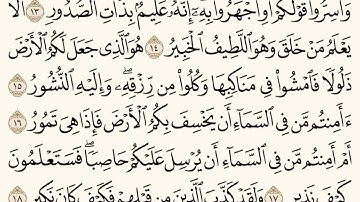 وَأَسِرُّواْ قَوْلَكُمْ أَوِ ٱجْهَرُواْ بِهِۦٓۖ إِنَّهُۥ عَلِيمُۢ بِذَاتِ ٱلصُّدُورِ ١٣ أَلَا
يَعْلَمُ مَنْ خَلَقَ وَهُوَ ٱللَّطِيفُ ٱلْخَبِيرُ ١٤ هُوَ ٱلَّذِى جَعَلَ لَكُمُ ٱلْأَرْضَ
ذَلُولًا فَٱمْشُواْ فِى مَنَاكِبِهَا وَكُلُواْ مِن رِّزْقِهِۦۖ وَإِلَيْهِ ٱلنُّشُورُ ١٥
ءَأَمِنتُم مَّن فِى ٱلسَّمَآءِ أَن يَخْسِفَ بِكُمُ ٱلْأَرْضَ فَإِذَا هِىَ تَمُورُ ١٦
أَمْ أَمِنتُم مَّن فِى ٱلسَّمَآءِ أَن يُرْسِلَ عَلَيْكُمْ حَاصِبًاۖ فَسَتَعْلَمُونَ
كَيْفَ نَذِيرِ ١٧ وَلَقَدْ كَذَّبَ ٱلَّذِينَ مِن قَبْلِهِمْ فَكَيْفَ كَانَ نَكِيرِ ١٨